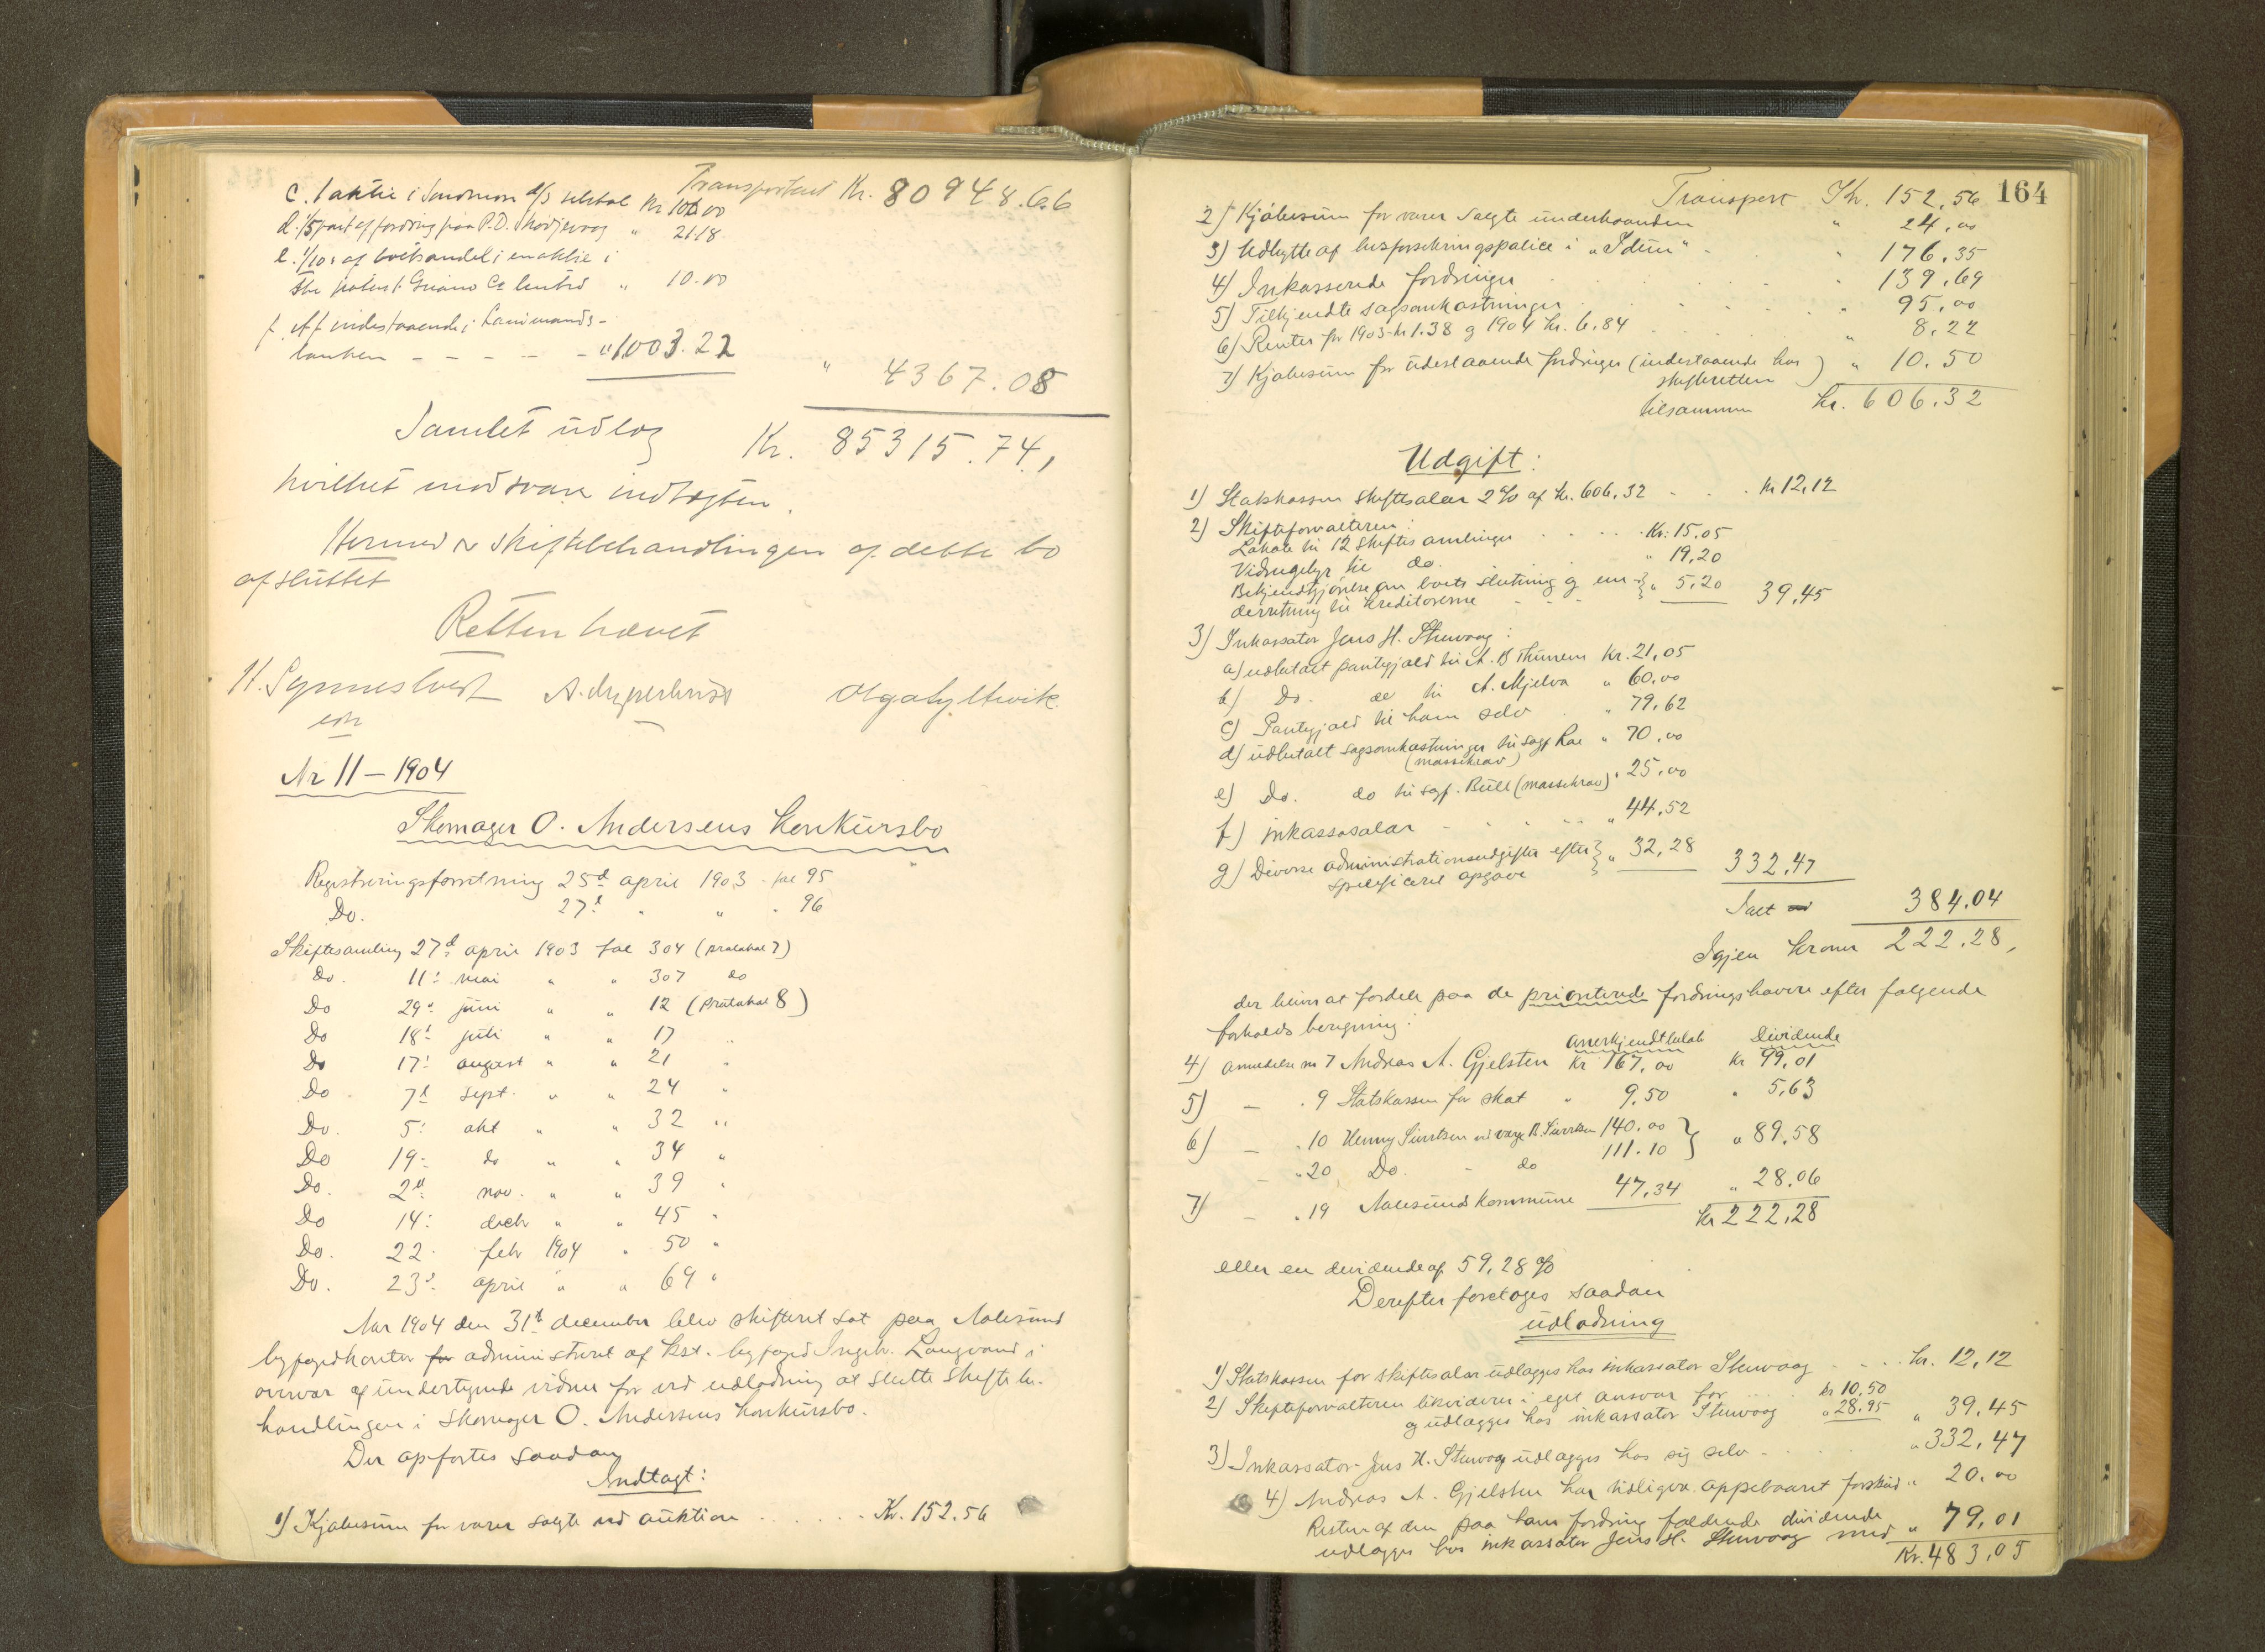 Transportent Kr. 80948.66
c. 1 aktie i Søndmøre d/s selskab Kr 100.00
d. 1/5 part af fordring paa P.O. Skodjevaag " 21.18
e. 1/10 af boets andel i en aktie i
the Guano Co limited " 10.00
f. Af indestaaende i Landmands-
banken - - - - - " 1003.22
" 4367.08
Samlet udlæg Kr. 85315.74,
hvilket modsvarer indtægten.
Hermed er skiftebehandlingen af dette bo
afsluttet
Retten hævet
H. Synnestvedt
Nr 11 – 1904
Skomager O. Andersens Konkursbo
Registreringsforretning 25d april 1903 fol 95
Do. 27d " " " 96
Skiftesamling 27d april 1903 fol 304 (protokol 7)
Do. 11: mai " " 307 do
Do 29: juni " " 12 (protokol 8)
Do 18: juli " " 17 "
Do 17: august " " 21 "
Do 7d sept. " " 24 "
Do. 5: okt " " 32 "
Do 19: do " " 34 "
Do. 2d nov. " " 39 "
Do 14: decb " " 45 "
Do. 22. febr 1904 " 50 "
Do. 23: april " " 69 "
Aar 1904 den 31d december blev skifteret sat paa Aalesund
byfogedkontor for administreret af kst. byfoged Ingebr. Langvand i
overvær af undertegnede vidner for ved udlodning at slutte skiftebe-
handlingen i skomager O. Andersens konkursbo.
Der opførtes saadan
Indtægt:
1) Kjøbesum for varer solgte ved auktion . . . . . . Kr. 152.56
164
Transport Kr. 152.56
2) Kjøbesum for varer solgte underhaanden " 24.00
3) Udbytte af livsforsikringspolice i "Idun" . . " 176.35
4) Inkasserede fordringer . . . . . " 139.69
5) Tilkjendte sagsomkostninger . . . . " 95.00
6) Renter for 1903 kr 1.38 og 1904 kr. 6.84 . . . " 8.22
7) Kjøbesum for udestaaende fordringer (indestaaende hos
skifteretten) " 10.50
tilsammen kr. 606.32
Udgift:
1) Statskassen skiftesalær 2% af kr. 606,32 . . . kr 12,12
2) Skifteforvalteren:
Lokale til 12 skiftesamlinger . . . . Kr. 15.05
Vidnegebyr til do. " 19,20
Bekjendtgjørelse om boets slutning og un-
derretning til kreditorerne - - - " 5,20 39,45
3) Inkassator Jens H. Stenvaag:
a) udbetalt pantegjæld til A. B Thunem Kr. 21,05
b) Do. do til A. Mjelva " 60,00
c) Pantegjæld til ham selv . " 79,62
d) udbetalt sagsomkostninger til sagf. Roe " 70,00
(massekrav)
e) Do. do til sagf. Bull (massekrav) " 25,00
f) inkassosalær - - - - - " 44,52
g) Diverse administrationsudgifter efter
specificeret opgave " 32,28 332,47
Ialt 384.04
Igjen kroner 222.28,
der bliver at fordele paa de prioriterede fordringshavere efter følgende
forholdsberegning:
anerkjendt beløb Dividende
4) anmeldelse nr 7 Andreas A. Gjelsten kr 167.00 kr 99.01
5) — " 9 Statskassen for skat " 9,50 " 5,63
6) — " 10 Henny Sivertsen ved verge B. Sivertsen 140.00
— " 20 Do. - do 111.10 " 89.58
7) — " 19 Aalesunds kommune 47,34 " 28.06
Kr 222,28
eller en dividende af 59,28 %
Derefter foretoges saadan
udlodning
1) Statskassen for skiftesalær udlægges hos inkassator Stenvaag . . . kr. 12,12
2) Skifteforvalteren likviderer i eget ansvar for . . . kr 10.50
og udlægges hos inkassator Stenvaag " 28.95 " 39.45
3) Inkassator Jens H. Stenvaag udlægges hos sig selv - . . . " 332,47
4) Andreas A. Gjelsten har tidligere oppebaaret forskud " 20.00
Resten af den paa hans fordring faldende dividende
udlægges hos inkassator Jens H. Stenvaag med " 79,01
Kr. 483,05